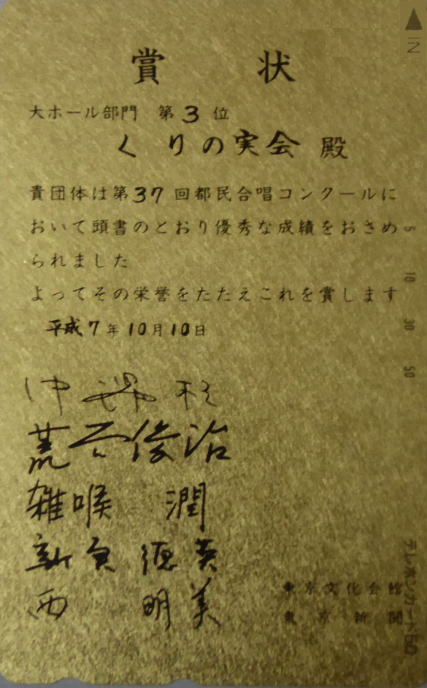 賞 状
大ホール部門 第3位
くりの実会 殿
貴団体は第37回都民合唱コンクールに
おいて頭書のとおり優秀な成績をおさめ
られました
よってその栄誉をたたえこれを賞します
平成7年10月10日
荒 俊治
雑喉 潤
新 徳英
西 明美
東京文化会館
東京新聞
IN
5
10
30
50
テレホンカード50